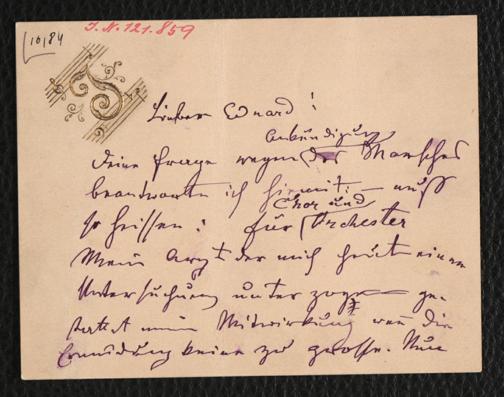 10,84
I.N. 121.859
Lieber Eduard!
Ankündigung
Deine Frage wegen der Marsches
beantworte ich hiermit: – muß
Chor und
so heissen: für Orchester
Mein Arzt der mich heute einer
Untersuchung unterzogen ge-
stattet meine Mitwirkung wenn die
Ermüdung keine zu grosse. Nun